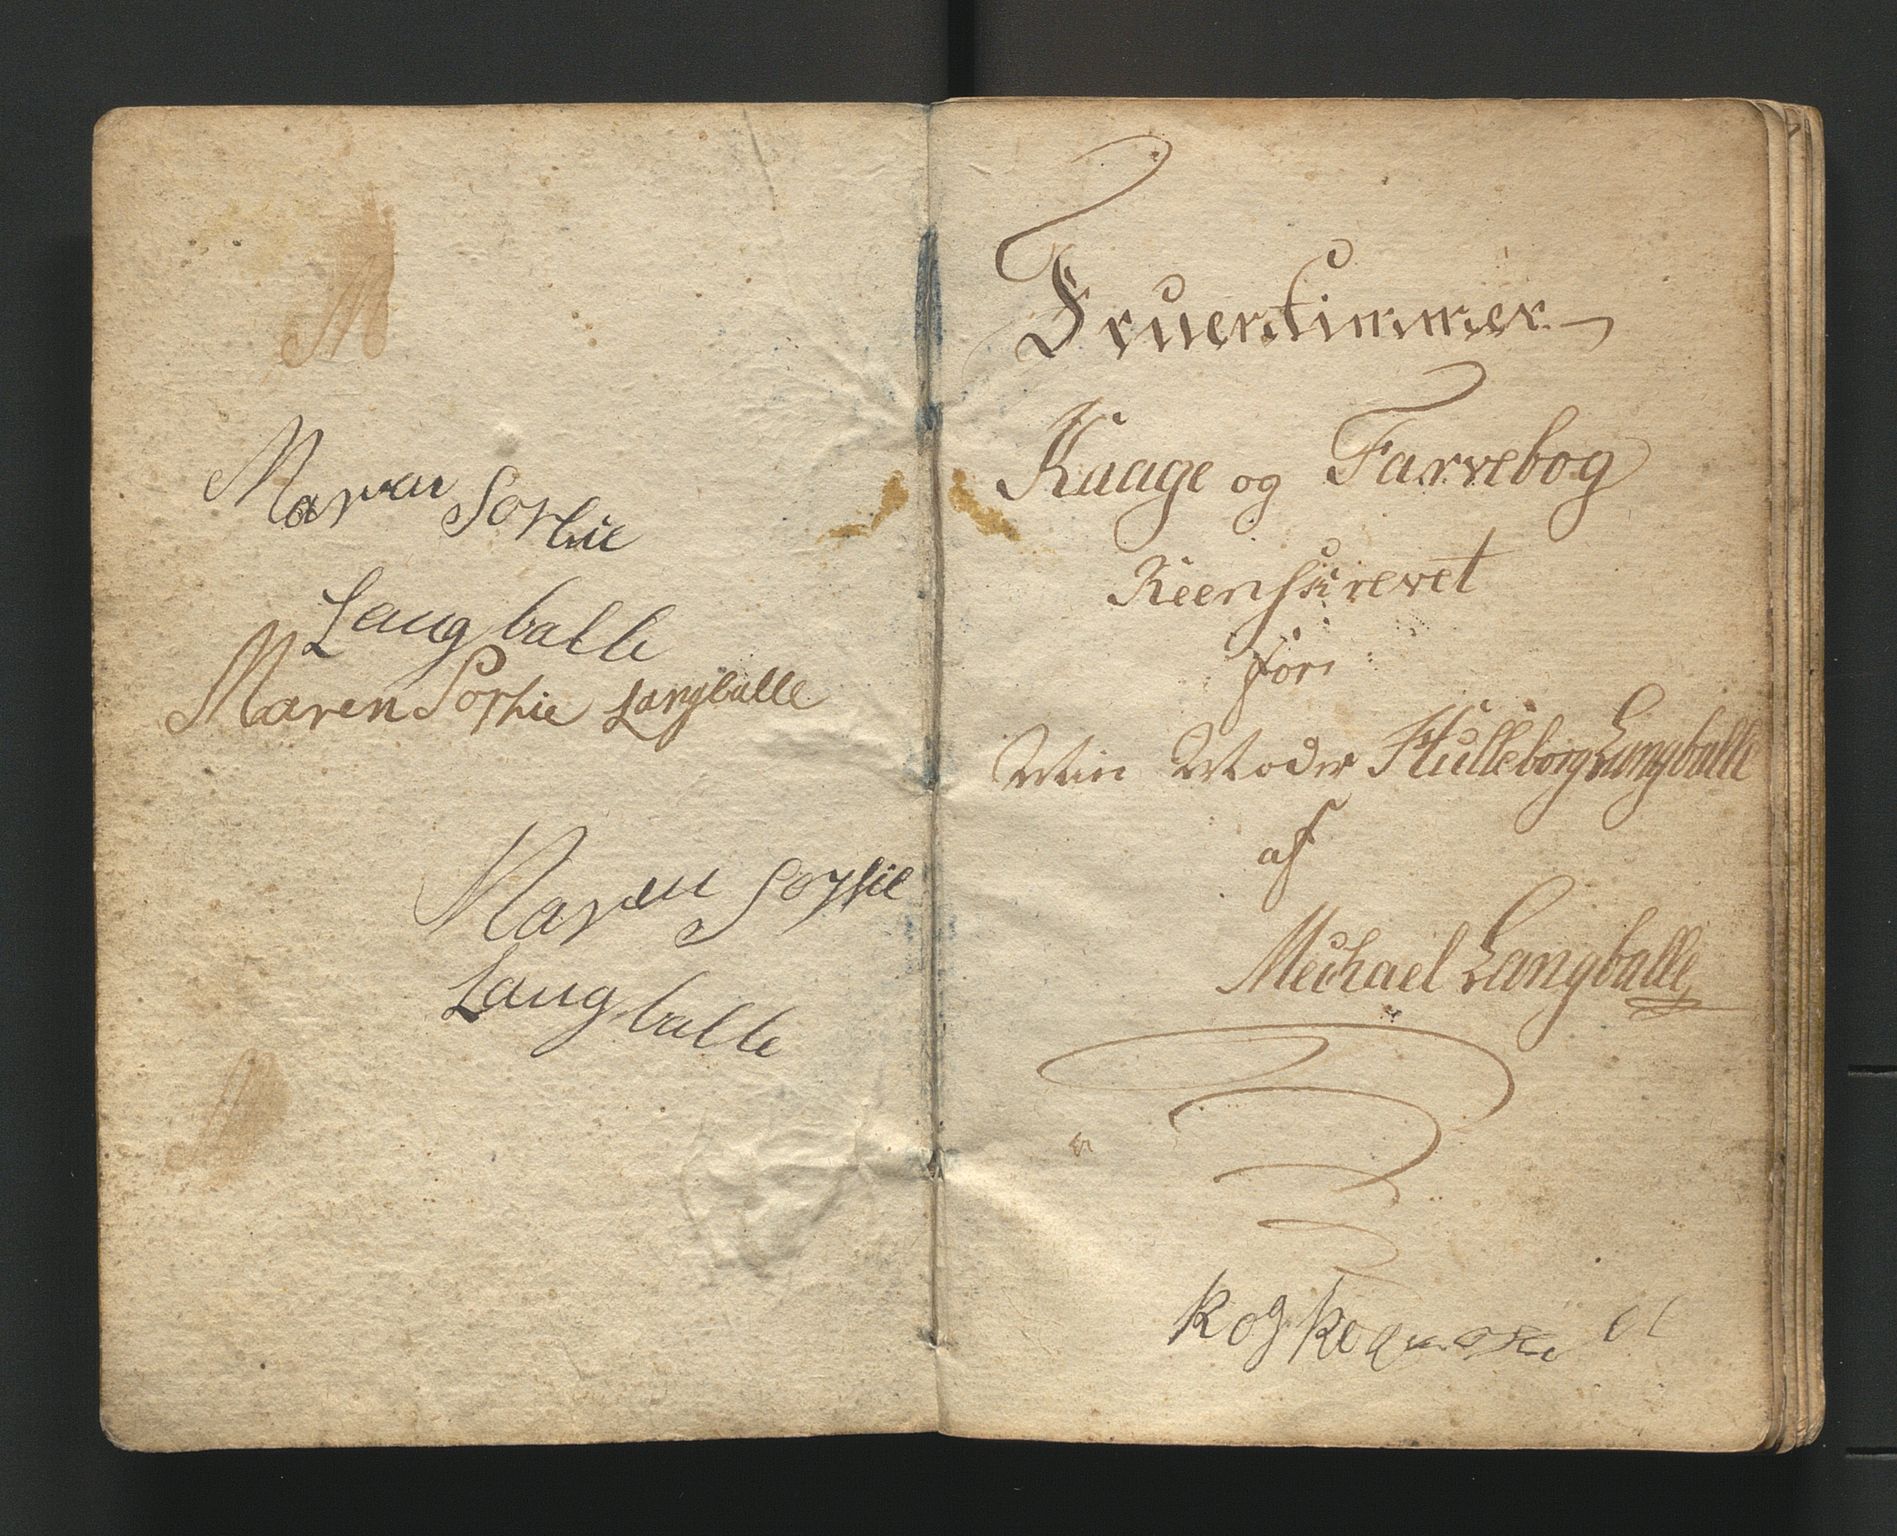 M
Maren Sophie
Langballe
Maren Sophie Langballe
Maren Sophie
Langballe
Fruentimmer
Kaage og Farvebog
Reenskrevet
for
Min Moder Hilleborg Langballe
af
Michael Langballe
kog